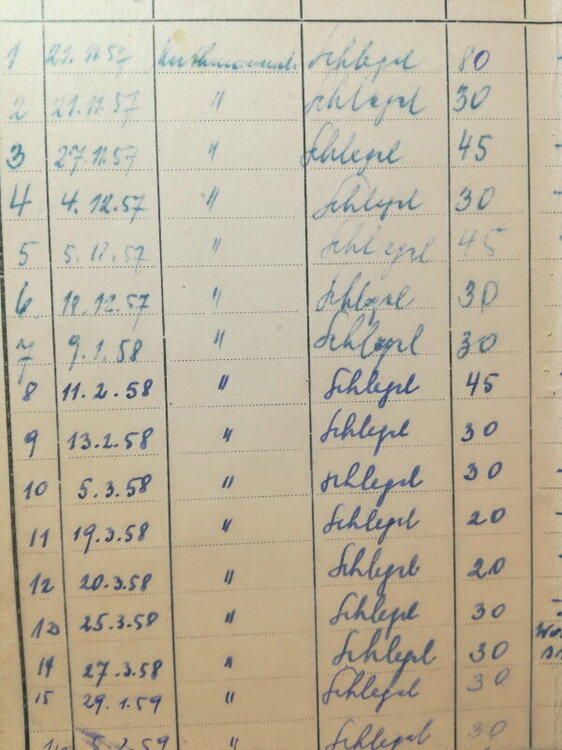 1 21.11.57 Schlegel 80
2 21.11.57 " Schlegel 30
3 27.11.57 " Schlegel 45
4 4.12.57 " Schlegel 30
5 5.12.57 " Schlegel 45
6 18.12.57 " Schlegel 30
7 9.1.58 " Schlegel 30
8 11.2.58 " Schlegel 45
9 13.2.58 " Schlegel 30
10 5.3.58 " Schlegel 30
11 19.3.58 " Schlegel 20
12 20.3.58 " Schlegel 20
13 25.3.58 " Schlegel 30
14 27.3.58 " Schlegel 30
15 29.1.59 " Schlegel 30
5.2.59 " Schlegel 30